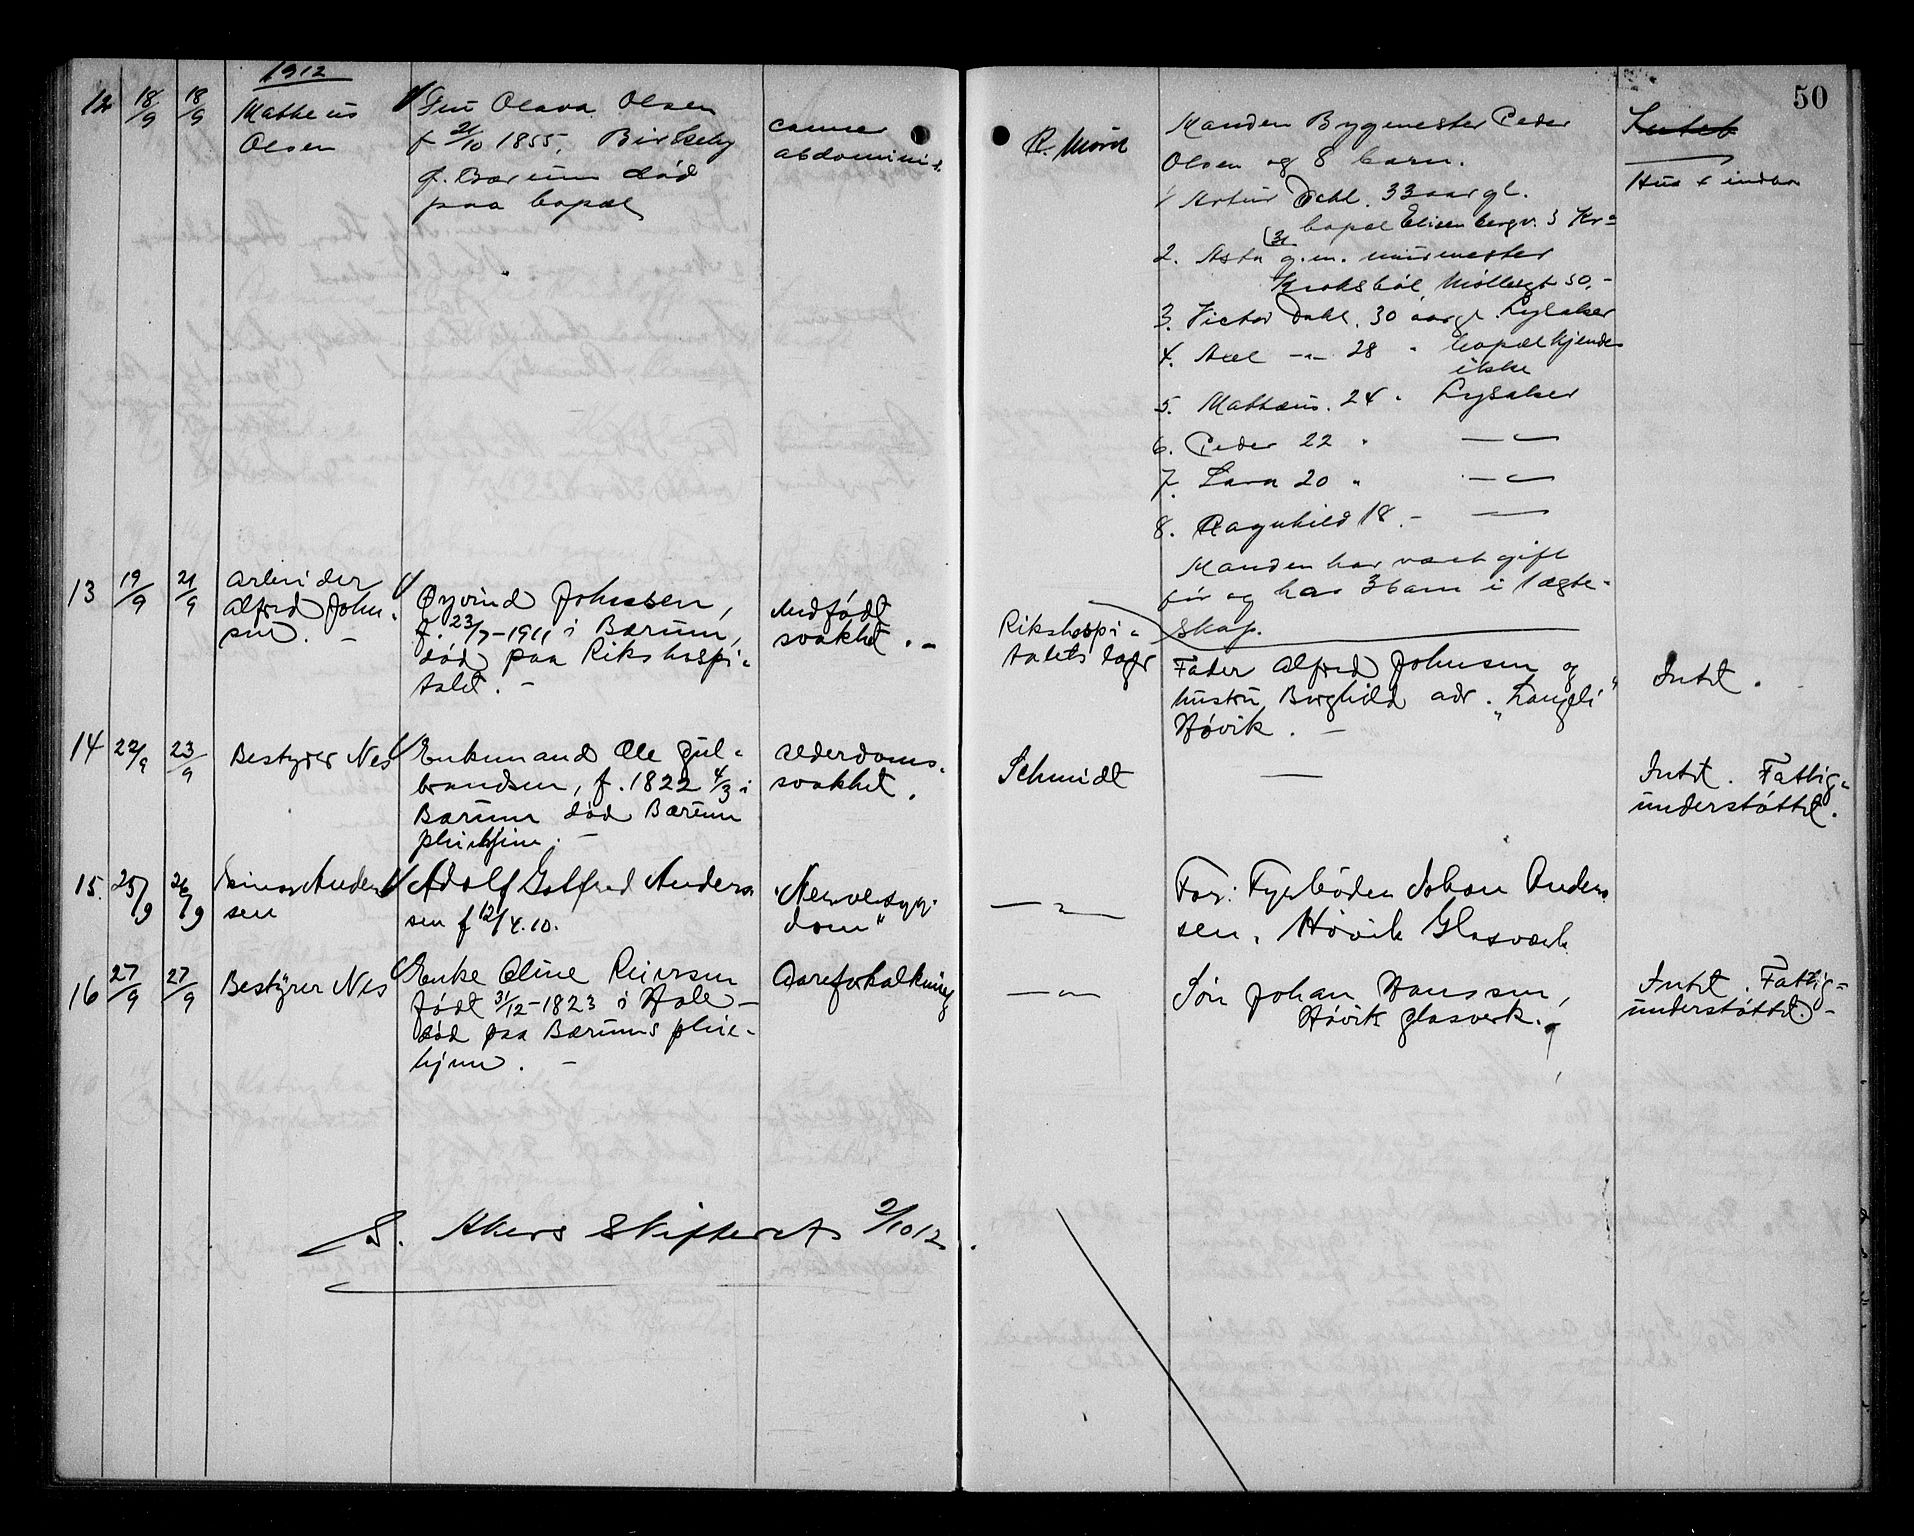 1912
50
12 18/9 18/9 Matheus
Olsen
Fru Olava Olsen
f 21/10 1855, Birkeby
f. Bærum død
paa bopæl
cancer
abdominis.
Manden Bygmester Peder
Olsen og 8 barn.
1 Artur Dahl. 33 aar gl.
bopæl Elisenbergv. 3 Kr=
2. Asta (31 g.m. murmester
Kroksböl, Möllergt 50.-
3. Victor Dahl. 30 aar gl. Lysaker
4. Axel -"- 28 " bopæl kjendes
ikke
5. Mathæus. 24 " Lysaker
6. Peder 22 " -"-
7. Lara 20 " -"-
8. Ragnhild 18 - -"-
Manden har været gift
før og har 3 barn i 1 ægte-
skap.
Intet
Hus & indbo
13 19/9 21/9 Arbeider
Alfred John-
sen. -
Øyvind Johnsen,
f. 23/7-1911 i Bærum,
død paa Rikshospi-
talet. -
Medfødt
svakhet. -
Rikshospi-
talets læge
Fader Alfred Johnsen og
hustru Borghild adr. "Langeli"
Høvik. -
Intet.
14 22/9 23/9 Bestyrer Nes
Enkemand Ole Gul-
brandsen, f. 1822 4/3 i
Bærum død Bærum
pleiehjem. -
Alderdoms-
svakhet.
Schmidt
-
Intet. Fattig-
understøttet.
15. 25/9 26/9 Anders
sen
Adolf Gotfred Anders
sen f 12/4.10.
"Nervesyg-
dom"
-"-
Far: Fyrbøder Johan Anders
sen, Høvik Glasværk
16 27/9 27/9 Bestyrer Nes
Enke Oline Reiersen
født 31/12-1823 i Hole -
død paa Bærums pleie-
hjem. -
Aareforkalkning
-"-
Søn Johan Hanssen,
Høvik glasverk.
Intet. Fattig-
understøttet. -
S. Akers Skifteret 2/10 12.